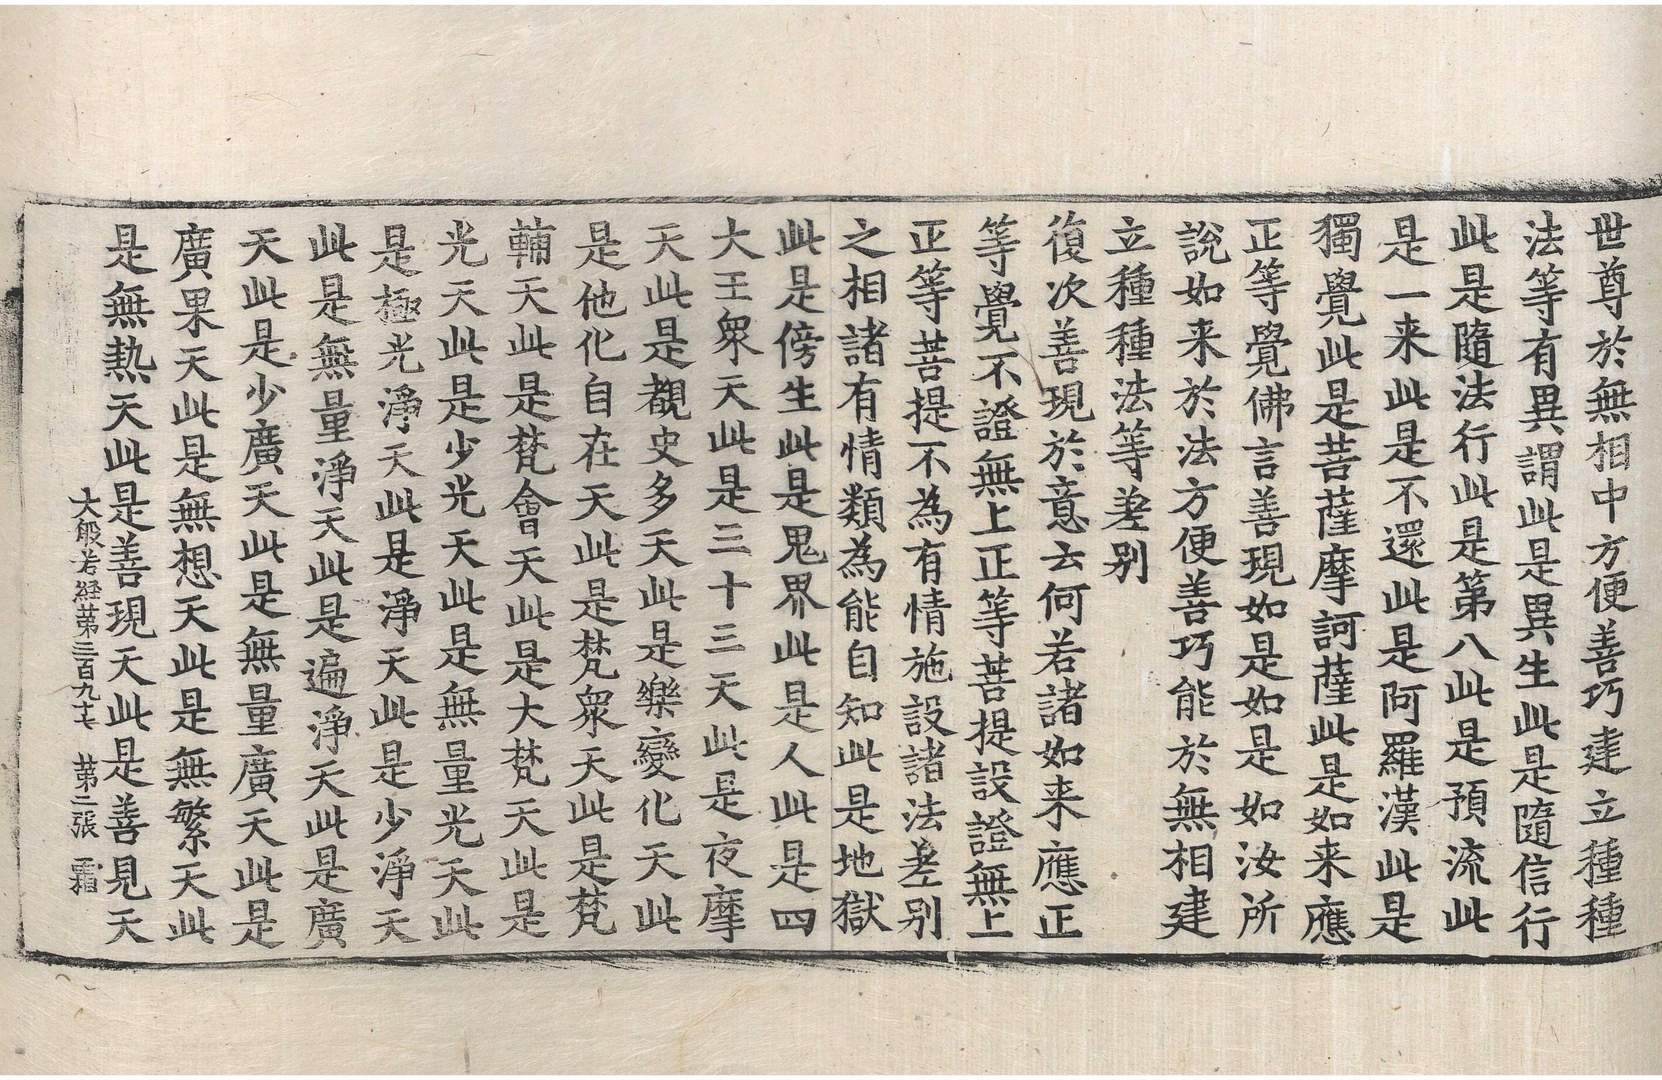 世尊於無相中方便善巧建立種種
法等有異謂此是異生此是隨信行
此是隨法行此是第八此是預流此
是一来此是不還此是阿羅漢此是
獨覺此是菩薩摩訶薩此是如来應
正等覺佛言善現如是如是如汝所
說如来於法方便善巧能於無相建
立種種法等差别
復次善現於意云何若諸如来應正
等覺不證無上正等菩提設證無上
正等菩提不為有情施設諸法差别
之相諸有情類為能自知此是地獄
此是傍生此是鬼界此是人此是四
大王衆天此是三十三天此是夜摩
天此是覩史多天此是樂變化天此
是他化自在天此是梵衆天此是梵
輔天此是梵會天此是大梵天此是
光天此是少光天此是無量光天此
是極光淨天此是淨天此是少淨天
此是無量淨天此是遍淨天此是廣
天此是少廣天此是無量廣天此是
廣果天此是無想天此是無繁天此
是無熱天此是善現天此是善見天
大般若経苐三百九十七 苐二張 霜